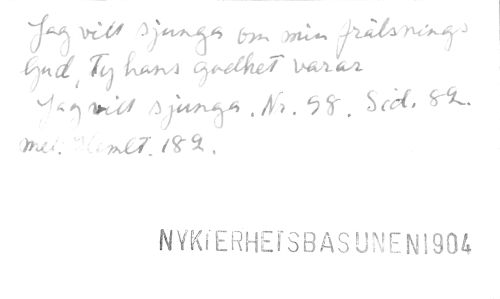 Jag vill sjunga om min frälsnings
Gud, Ty hans godhet varar
Jag vill sjunga. Nr. 98. Sid. 82.
mel. Hemlt. 182.
NYKTERHETSBASUNEN1904